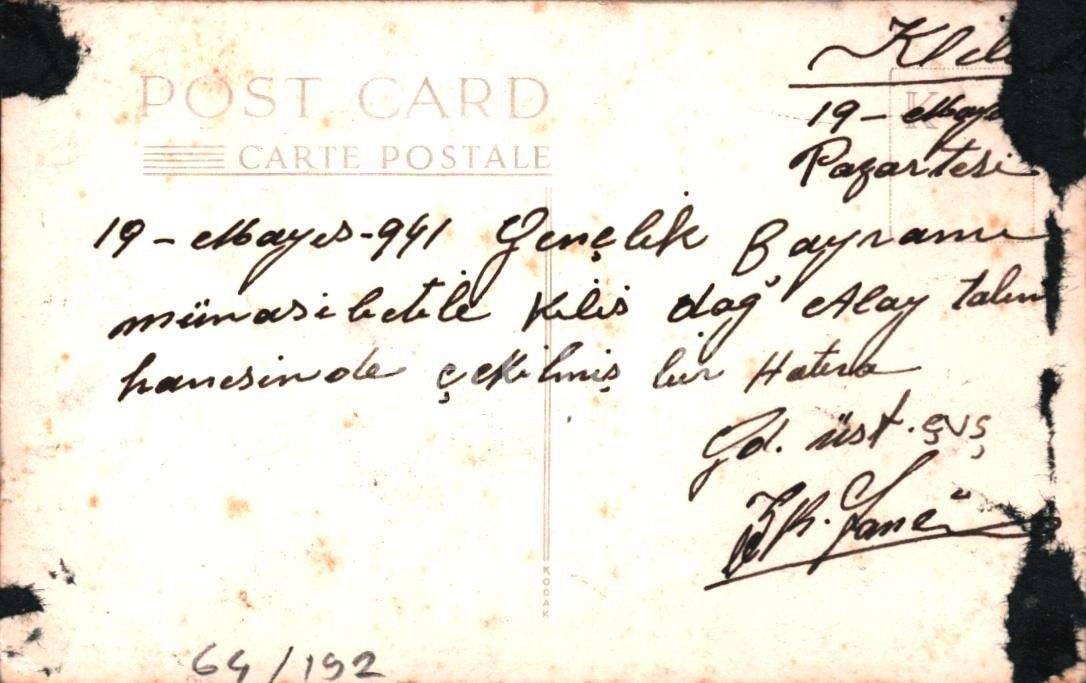 POST CARD
CARTE POSTALE
19 - Mayıs
Pazartesi
19 - Mayıs - 941 Gençlik Bayramı
münasibetile Kilis dağ Alay talim
hanesinde çekilmiş bir Hatıra
Gd. üst. çvş
KODAK
64/192